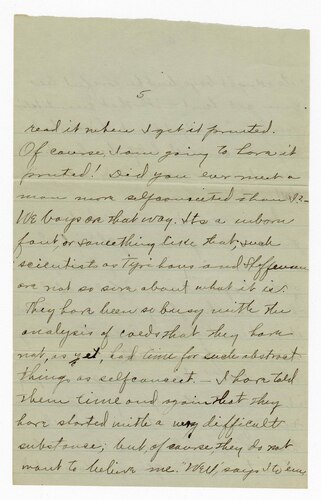 5
read it when I get it printed.
Of course, I am going to have it
printed! Did you ever meet a
man more selfconceited than I? -
We boys are that way. Its a inborn
fault or something like that, such
scientists as and
are not so sure about what it is.
They have been so busy with the
analysis of coeds that they have
not, as yet, had time for such abstract
things as selfconceit. - I have told
them time and again that they
have started with a very difficult
substance; but, of course they do not
want to believe me. Well says I to 'em,